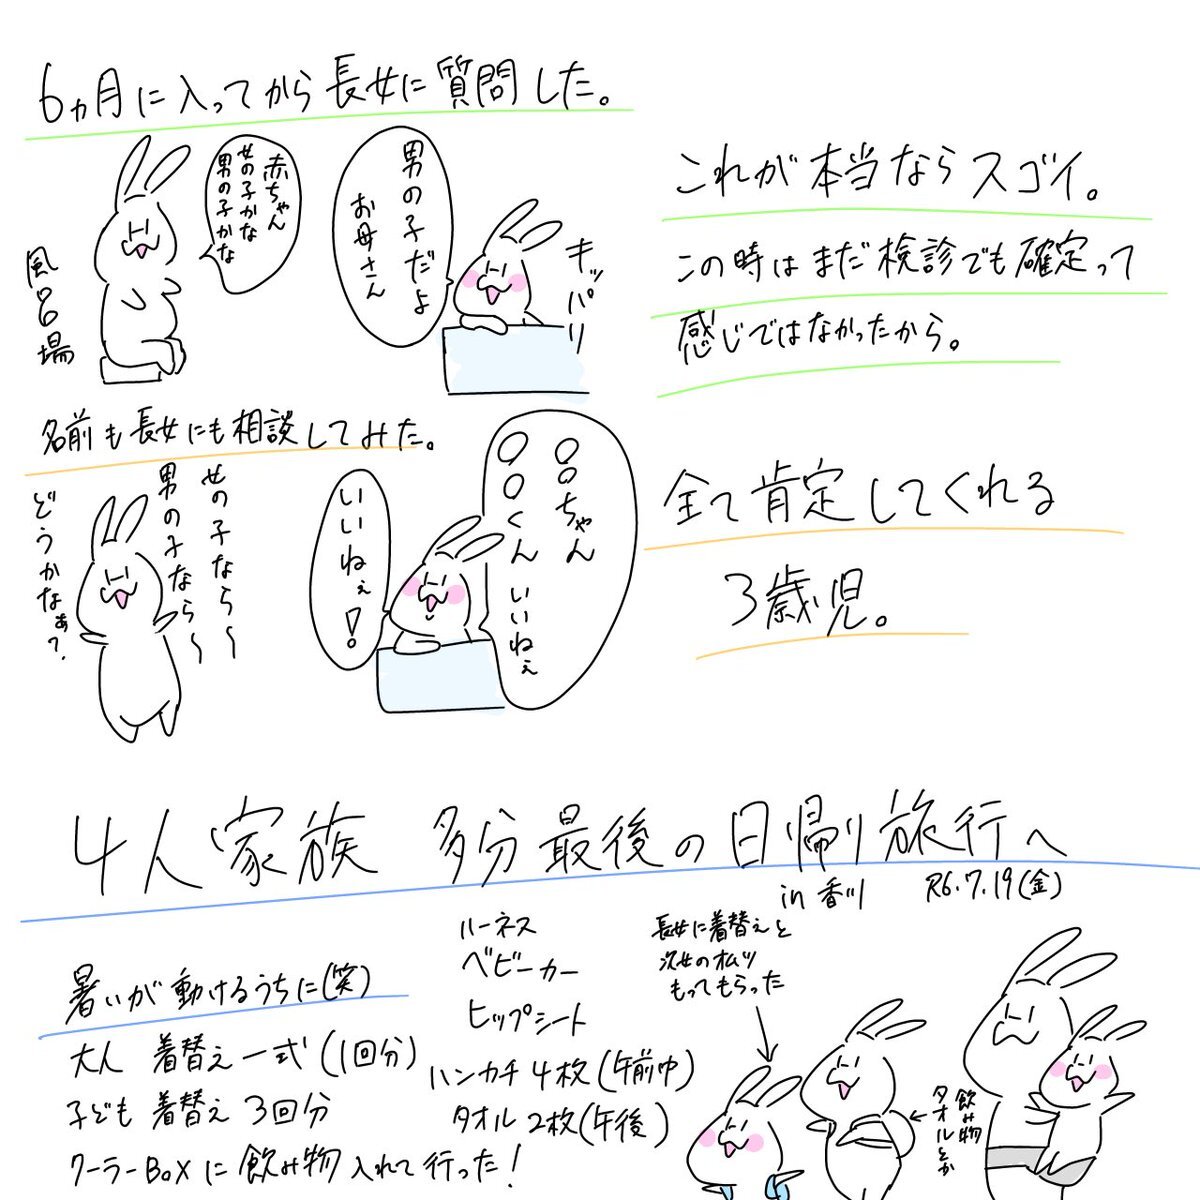 6ヵ月に入ってから長女に質問した。
赤ちゃん
女の子かな
男の子かな
男の子だよ
お母さん
キッパリ
風呂場
これが本当ならスゴイ。
この時はまだ検診でも確定って
感じではなかったから。
名前も長女にも相談してみた。
女の子なら～
男の子なら～
どうかなぁ?
○○ちゃん
○○くんいいねぇ
いいねぇ!
全て肯定してくれる
3歳児。
4人家族 多分最後の日帰り旅行へ
in 香川 R6.7.19(金)
暑いが動けるうちに(笑)
大人 着替え一式(1回分)
子ども 着替え 3回分
クーラーBoxに飲み物入れて行った!
ハーネス
ベビーカー
ヒップシート
ハンカチ4枚(午前中)
タオル2枚(午後)
長女に着替えと
次女のオムツ
もってもらった
飲み物
タオルとか